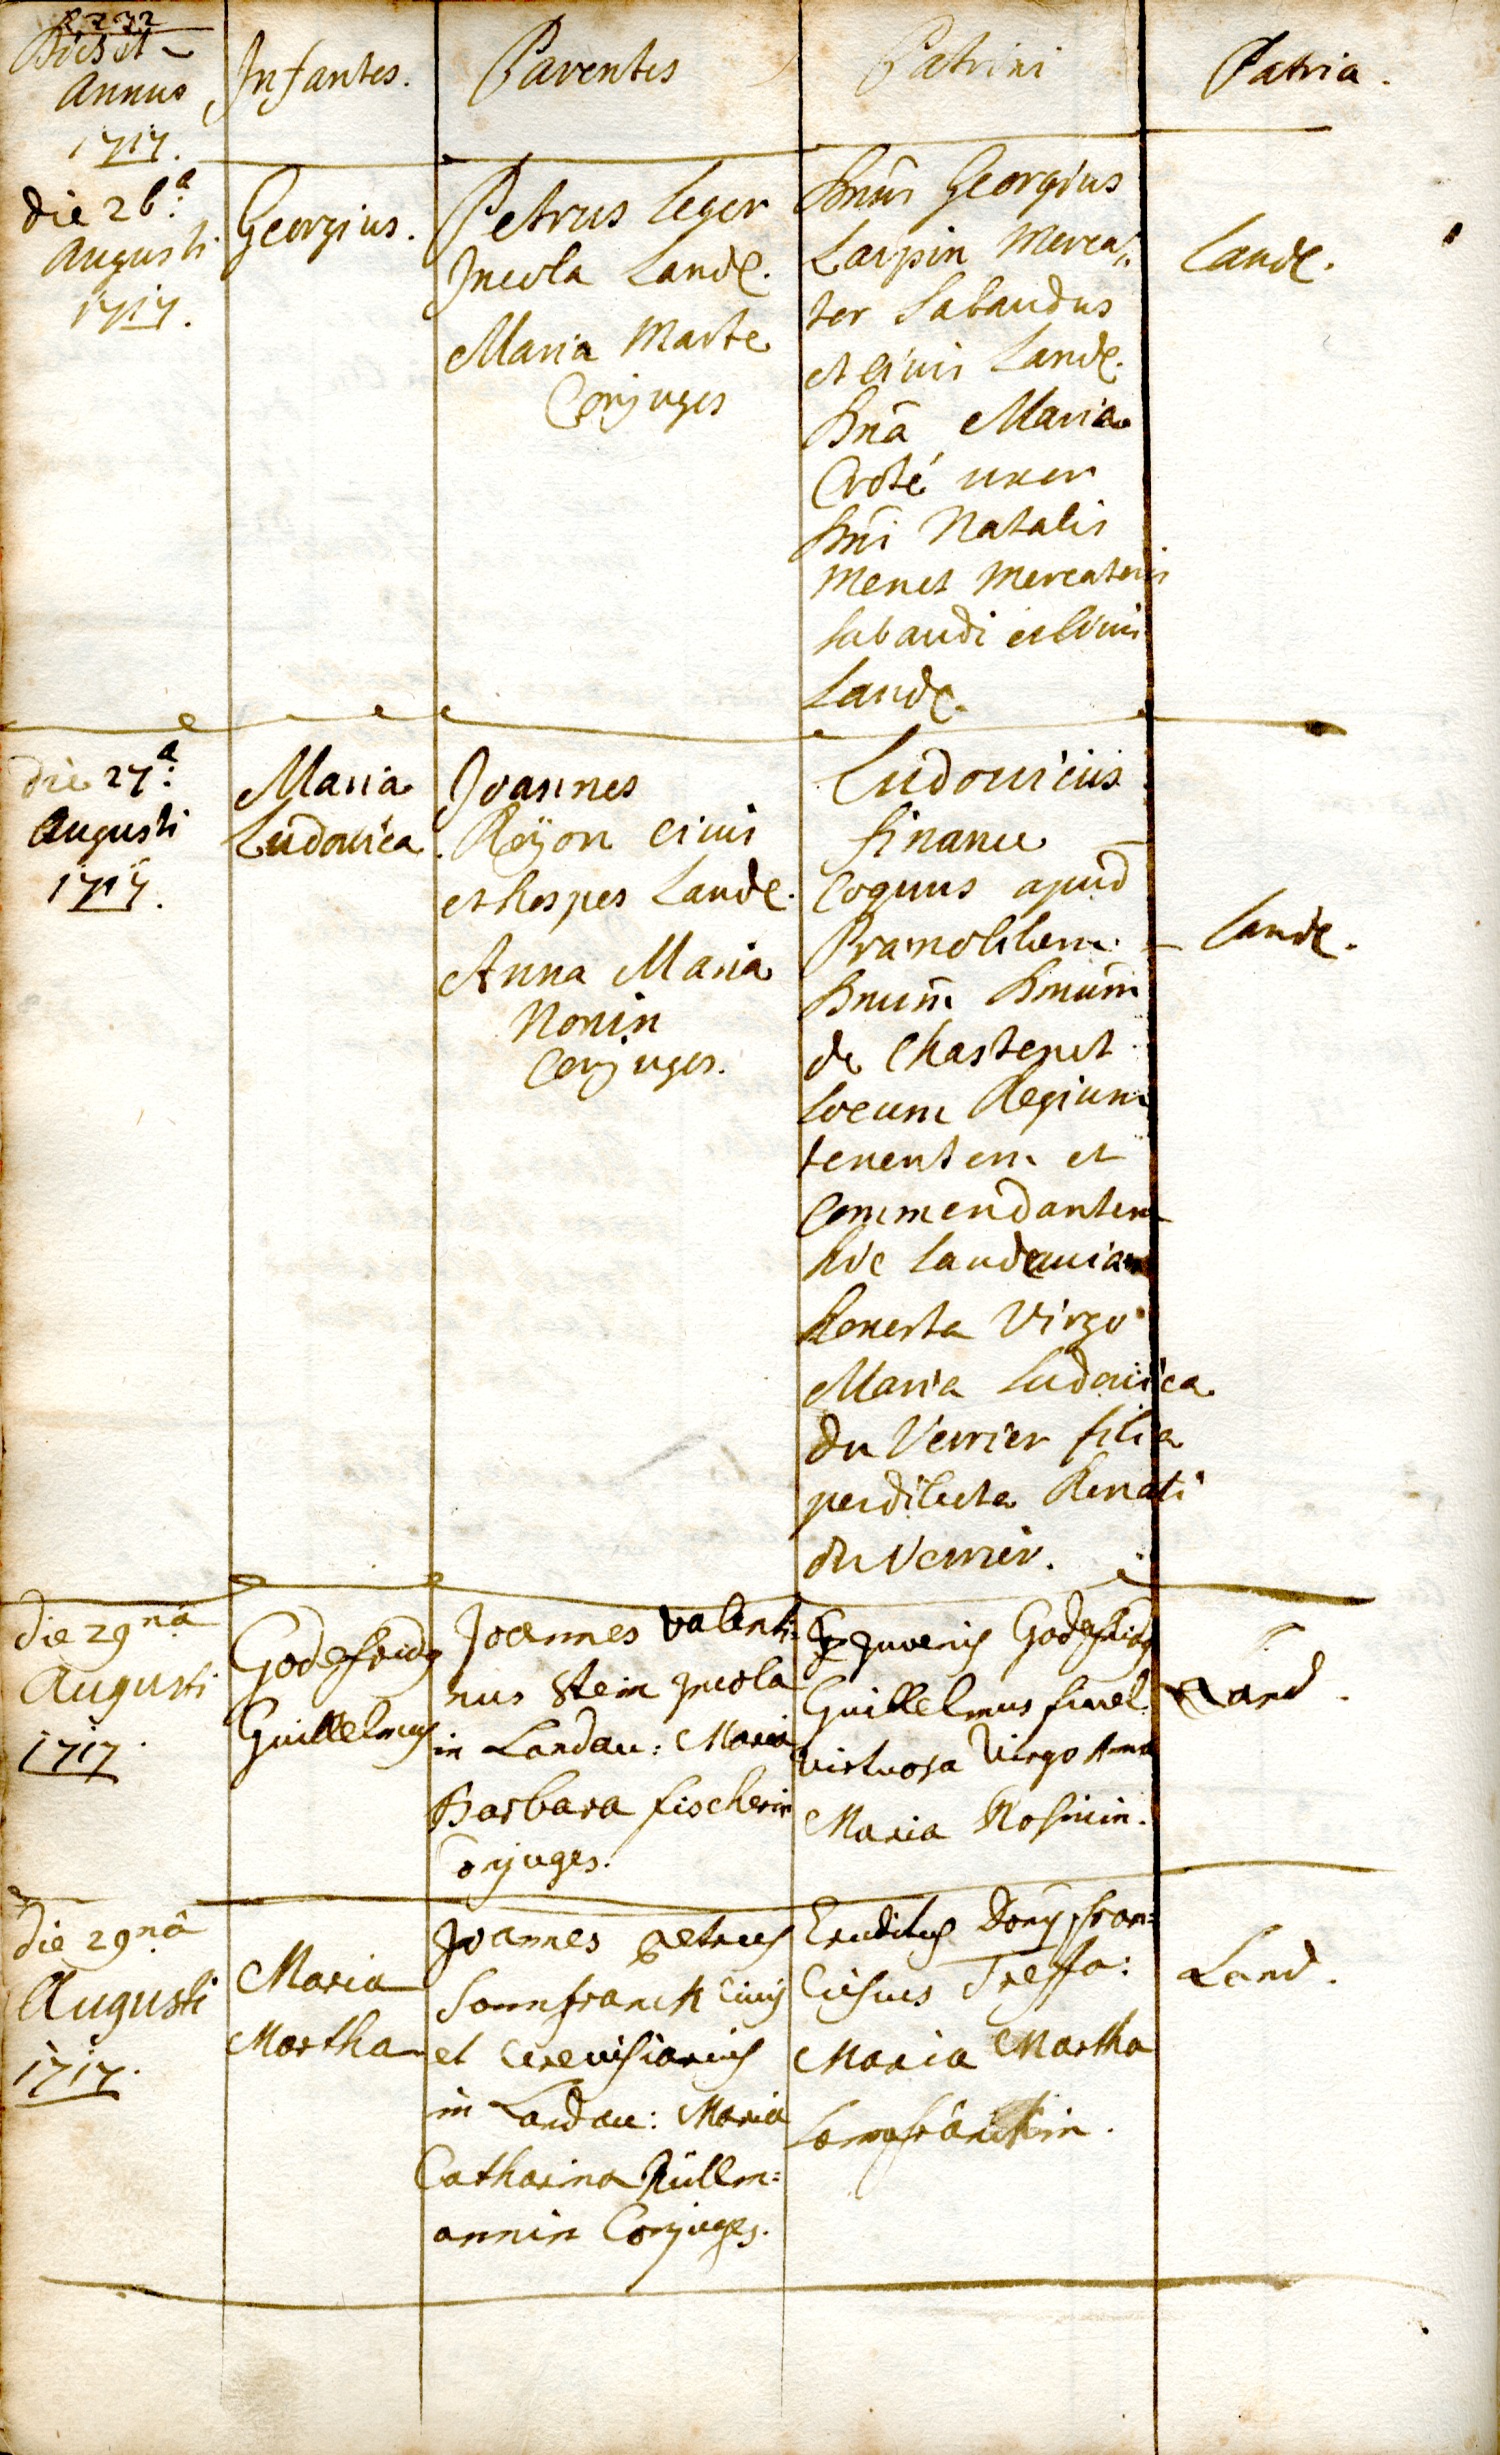 Dies et
Annus
1717.
Infantes.
Parentes
Patrini
Patria.
die 26.a
Augusti
1717.
Georgius.
Petrus Leger
Incola Landę.
Maria Marte
Conjuges
Dnūs Georgius
Larpin Merca„
tor Sabaudus
et civis Landę.
Dnā Maria
Croté uxor
Dnī Natalis
Menet Mercatoris
Sabaudi et civis
Landę.
Landę.
die 27.a
Augusti
1717.
Maria
Ludovica
Joannes
Reÿon civis
et hospes Landę.
Anna Maria
Nonin
Conjuges.
Ludovicus
finance
Coquus apud
Prænobilem
Dnum̄ Dnum̄
de Chastenet
Locum Regium
tenentem et
Commendantem
hic Landaviæ
honesta Virgo
Maria Ludovica
du Verrier filia
perdilecta Renati
du Verrier.
Landę.
die 29nā
Augusti
1717.
Godefridus
Guillelmus
Joannes Valenti:
nus Stein Incola
in Landau: Maria
Barbara fischerin
Conjuges.
Juvenis Godefridus
Guillelmus
Virtuosa Virgo Anna
Maria Rosinin.
Land.
die 29nâ
Augusti
1717.
Maria
Martha
Joannes Petrus
Sonnfranck Civis
et Cerevisiarius
in Landau: Maria
Catharina Küllm:
annin Conjuges.
Eruditus Dony fran:
ciscus Treffa:
Maria Martha
Sonnfränckin.
Land.